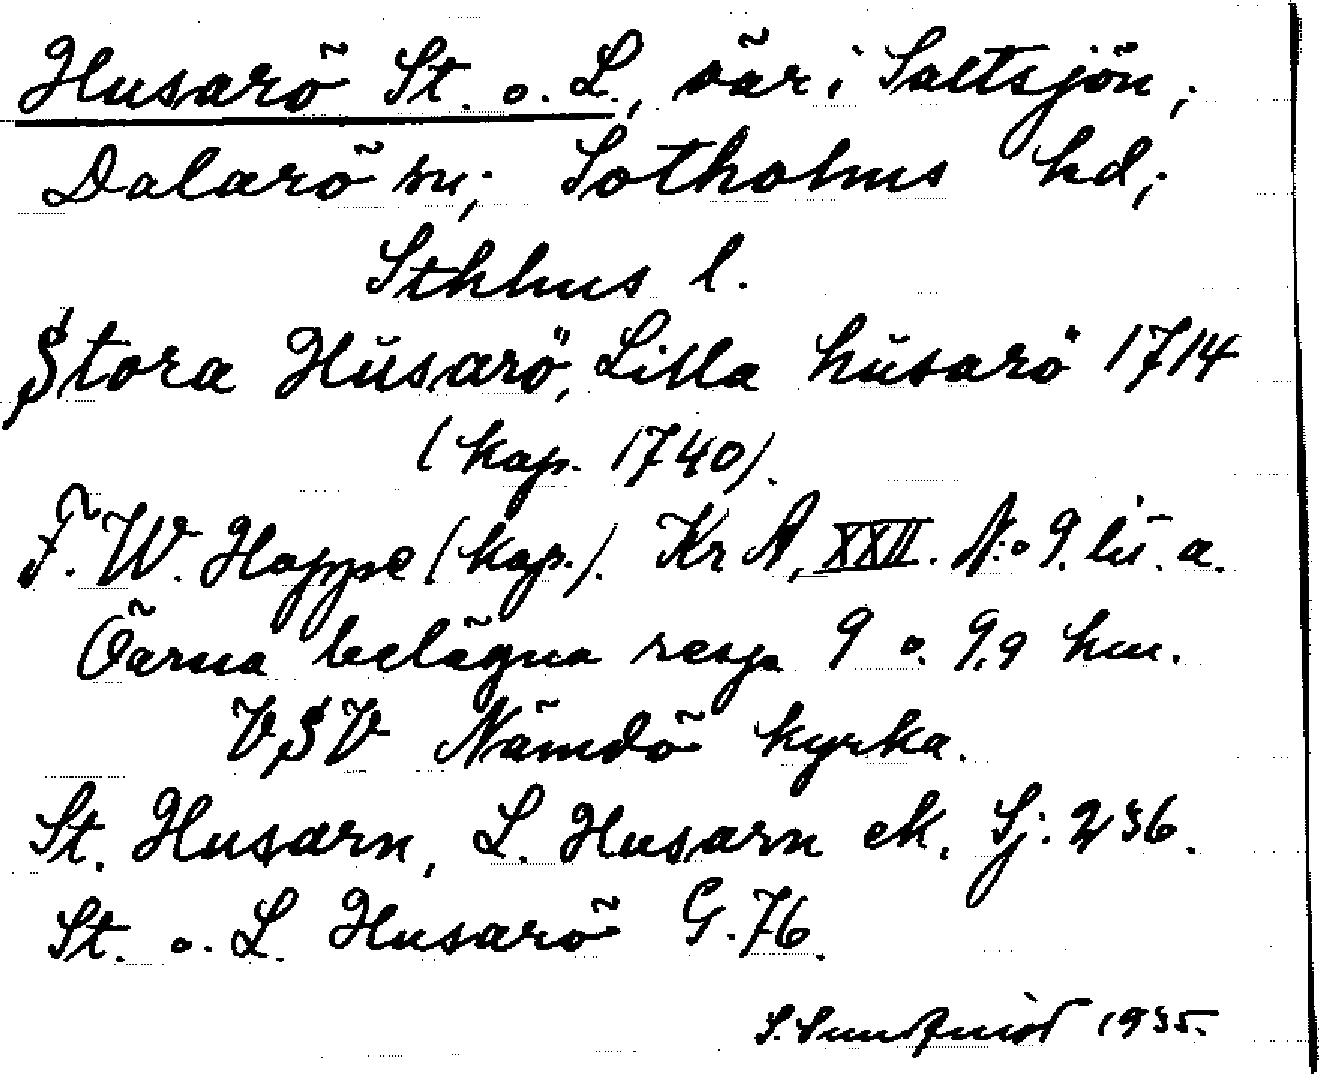 Husarö St. o. L., öar i Saltsjön,
Dalarö sn; Sotholms hd;
Sthlms l.
Stora Hŭsarö, Lilla hŭsarö 1714
(kap. 1740).
F. W. Hoppe (kop.). Kr A, XXII. N:o 9. lit. a.
Öarna belägna resp. 9 o. 9,9 km.
VSV Nämdö kyrka.
St. Husarn, L. Husarn ek. Sj: 236.
St. o. L. Husarö G. 76.
S. Sundqvist 1935.